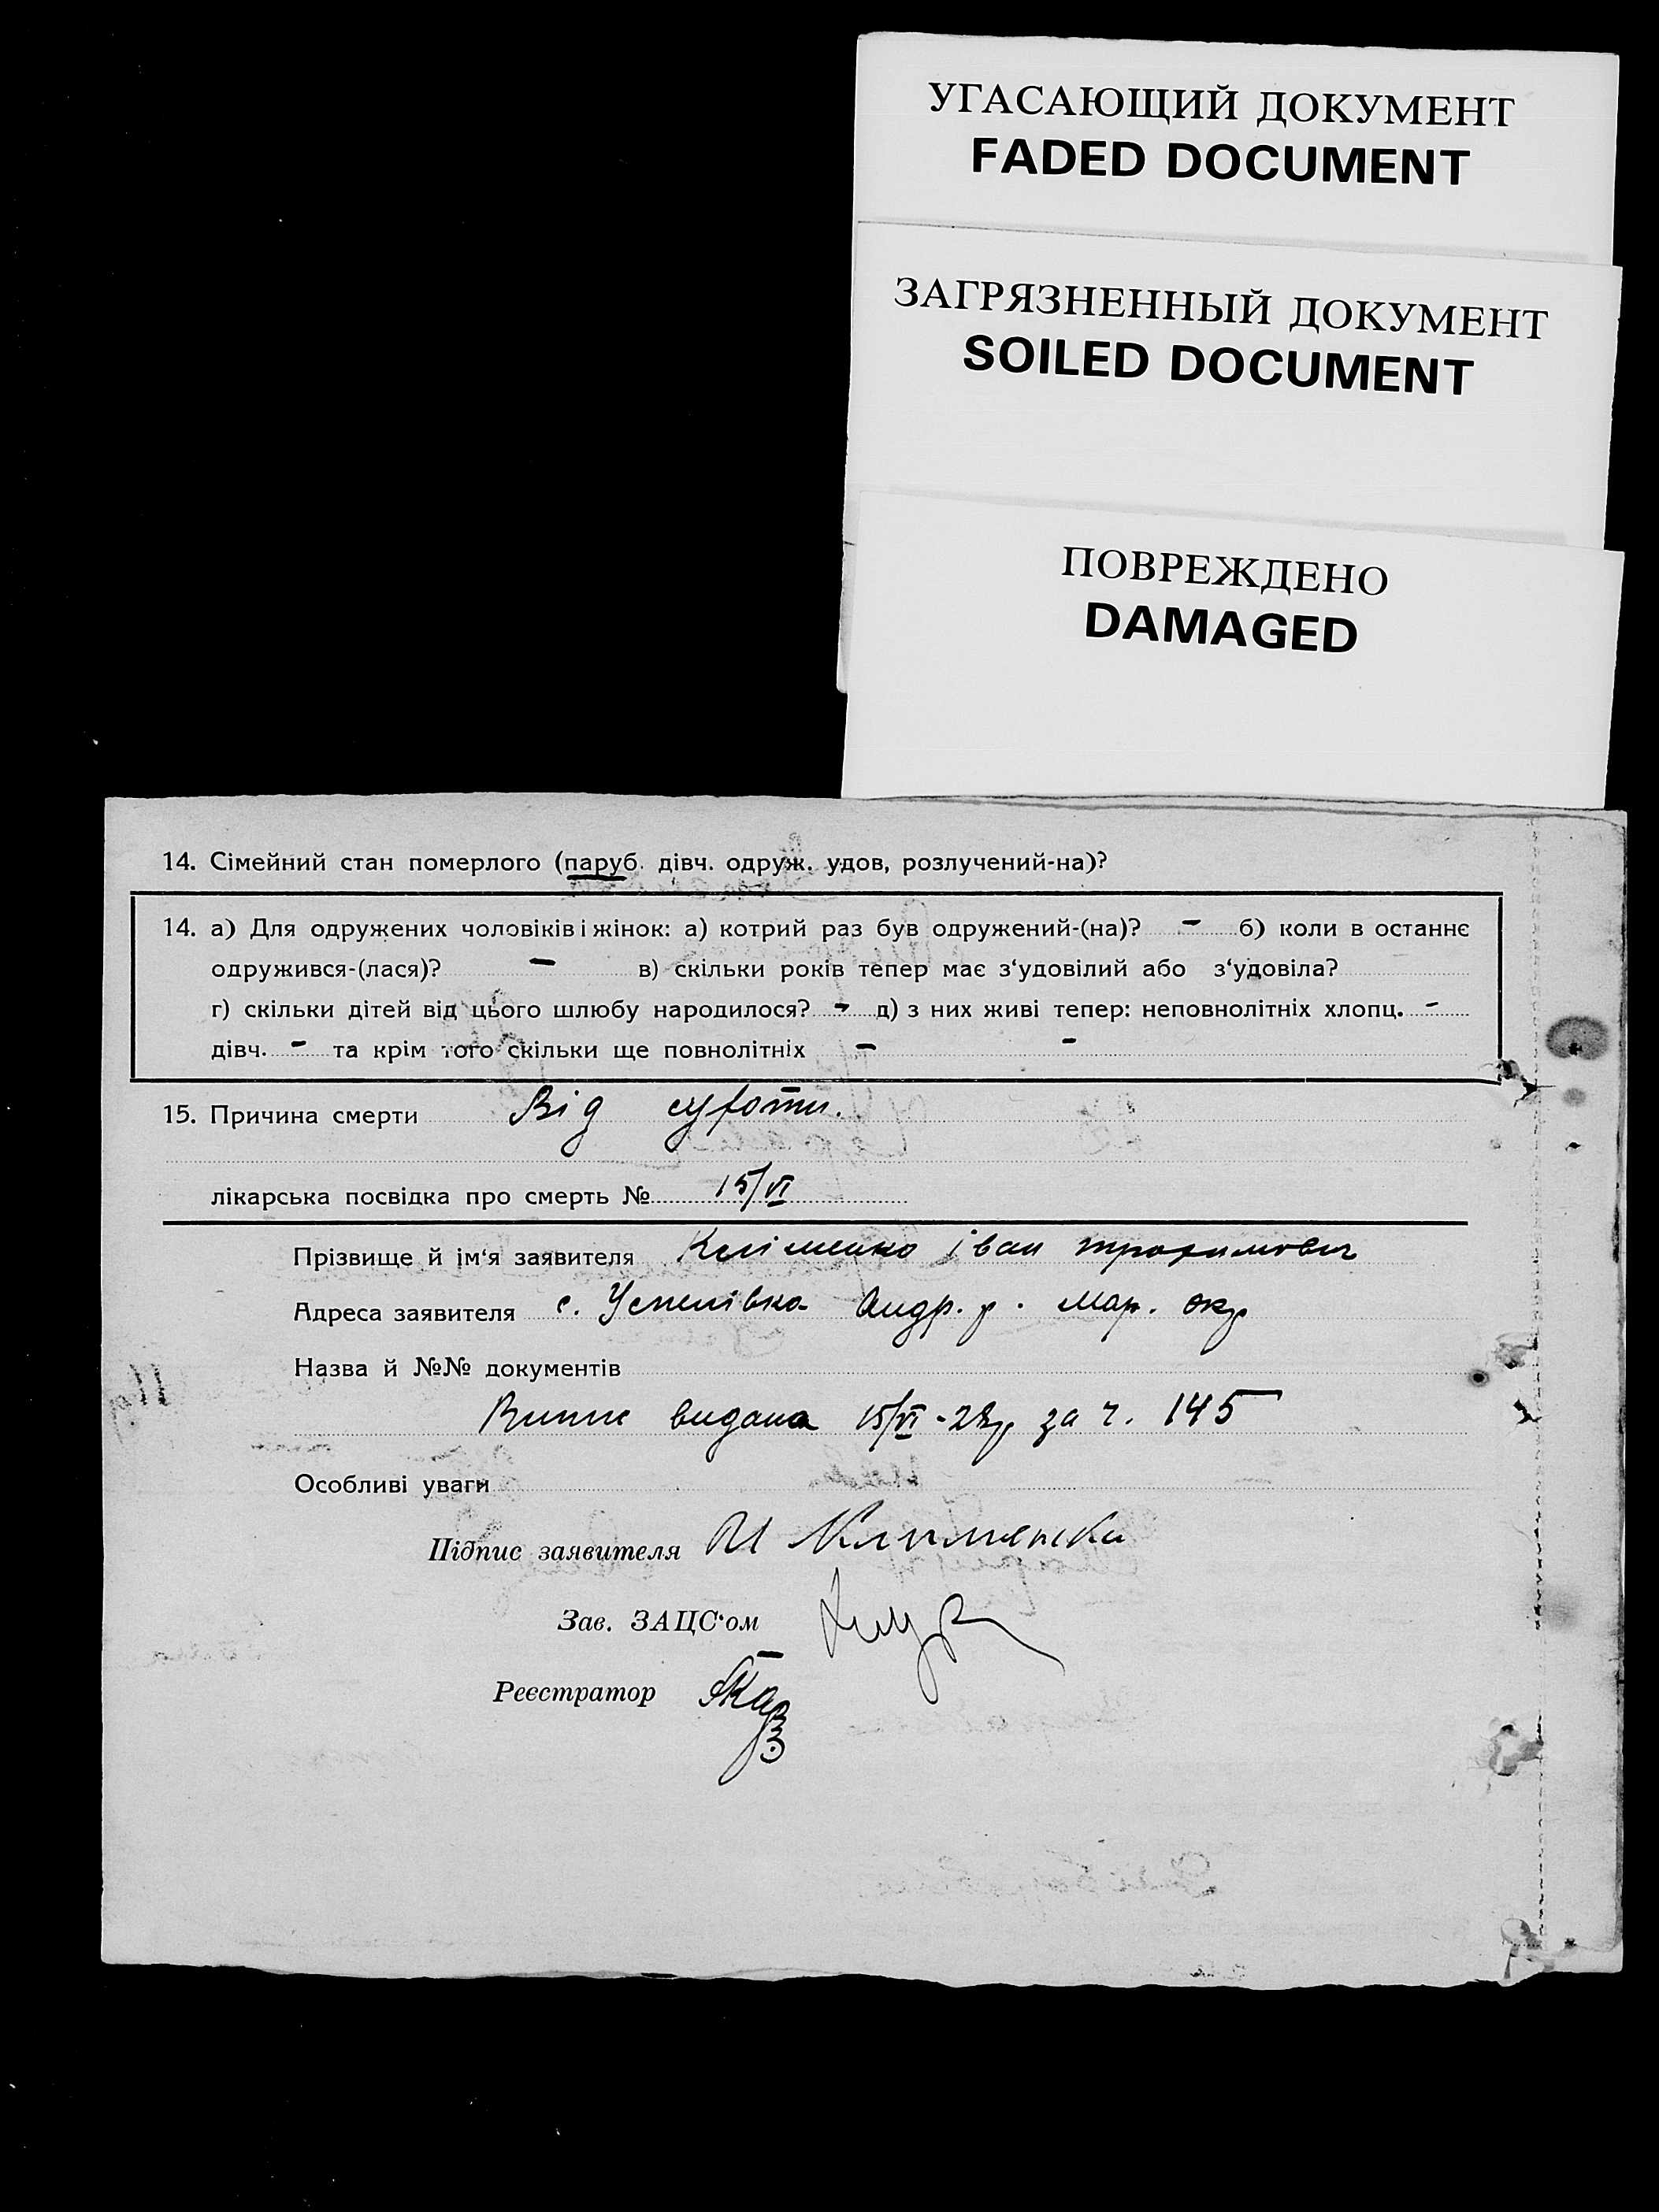 УГАСАЮЩИЙ ДОКУМЕНТ
FADED DOCUMENT
ЗАГРЯЗНЕННЫЙ ДОКУМЕНТ
SOILED DOCUMENT
ПОВРЕЖДЕНО
DAMAGED
14. Сімейний стан померлого (паруб. дівч. одруж. удов, розлучений-на)?
14. а) Для одружених чоловіків і жінок: а) котрий раз був одружений-(на)? - б) коли в останнє
одружився-(лася)? - в) скільки років тепер має з‘удовілий або з‘удовіла?
г) скільки дітей від цього шлюбу народилося? - д) з них живі тепер: неповнолітніх хлопц. -
дівч. - та крім того скільки ще повнолітніх - -
15. Причина смерти Від
лікарська посвідка про смерть № 15/VI
Прізвище й ім‘я заявителя Кліменко Іван трохимович
Адреса заявителя с. Успенівка Андр. р. Мар. окр
Назва й №№ документів
Випис видана 15/VI-28р за ч. 145
Особливі уваги
Підпис заявителя И Клименки
Зав. ЗАЦС‘ом
Реєстратор